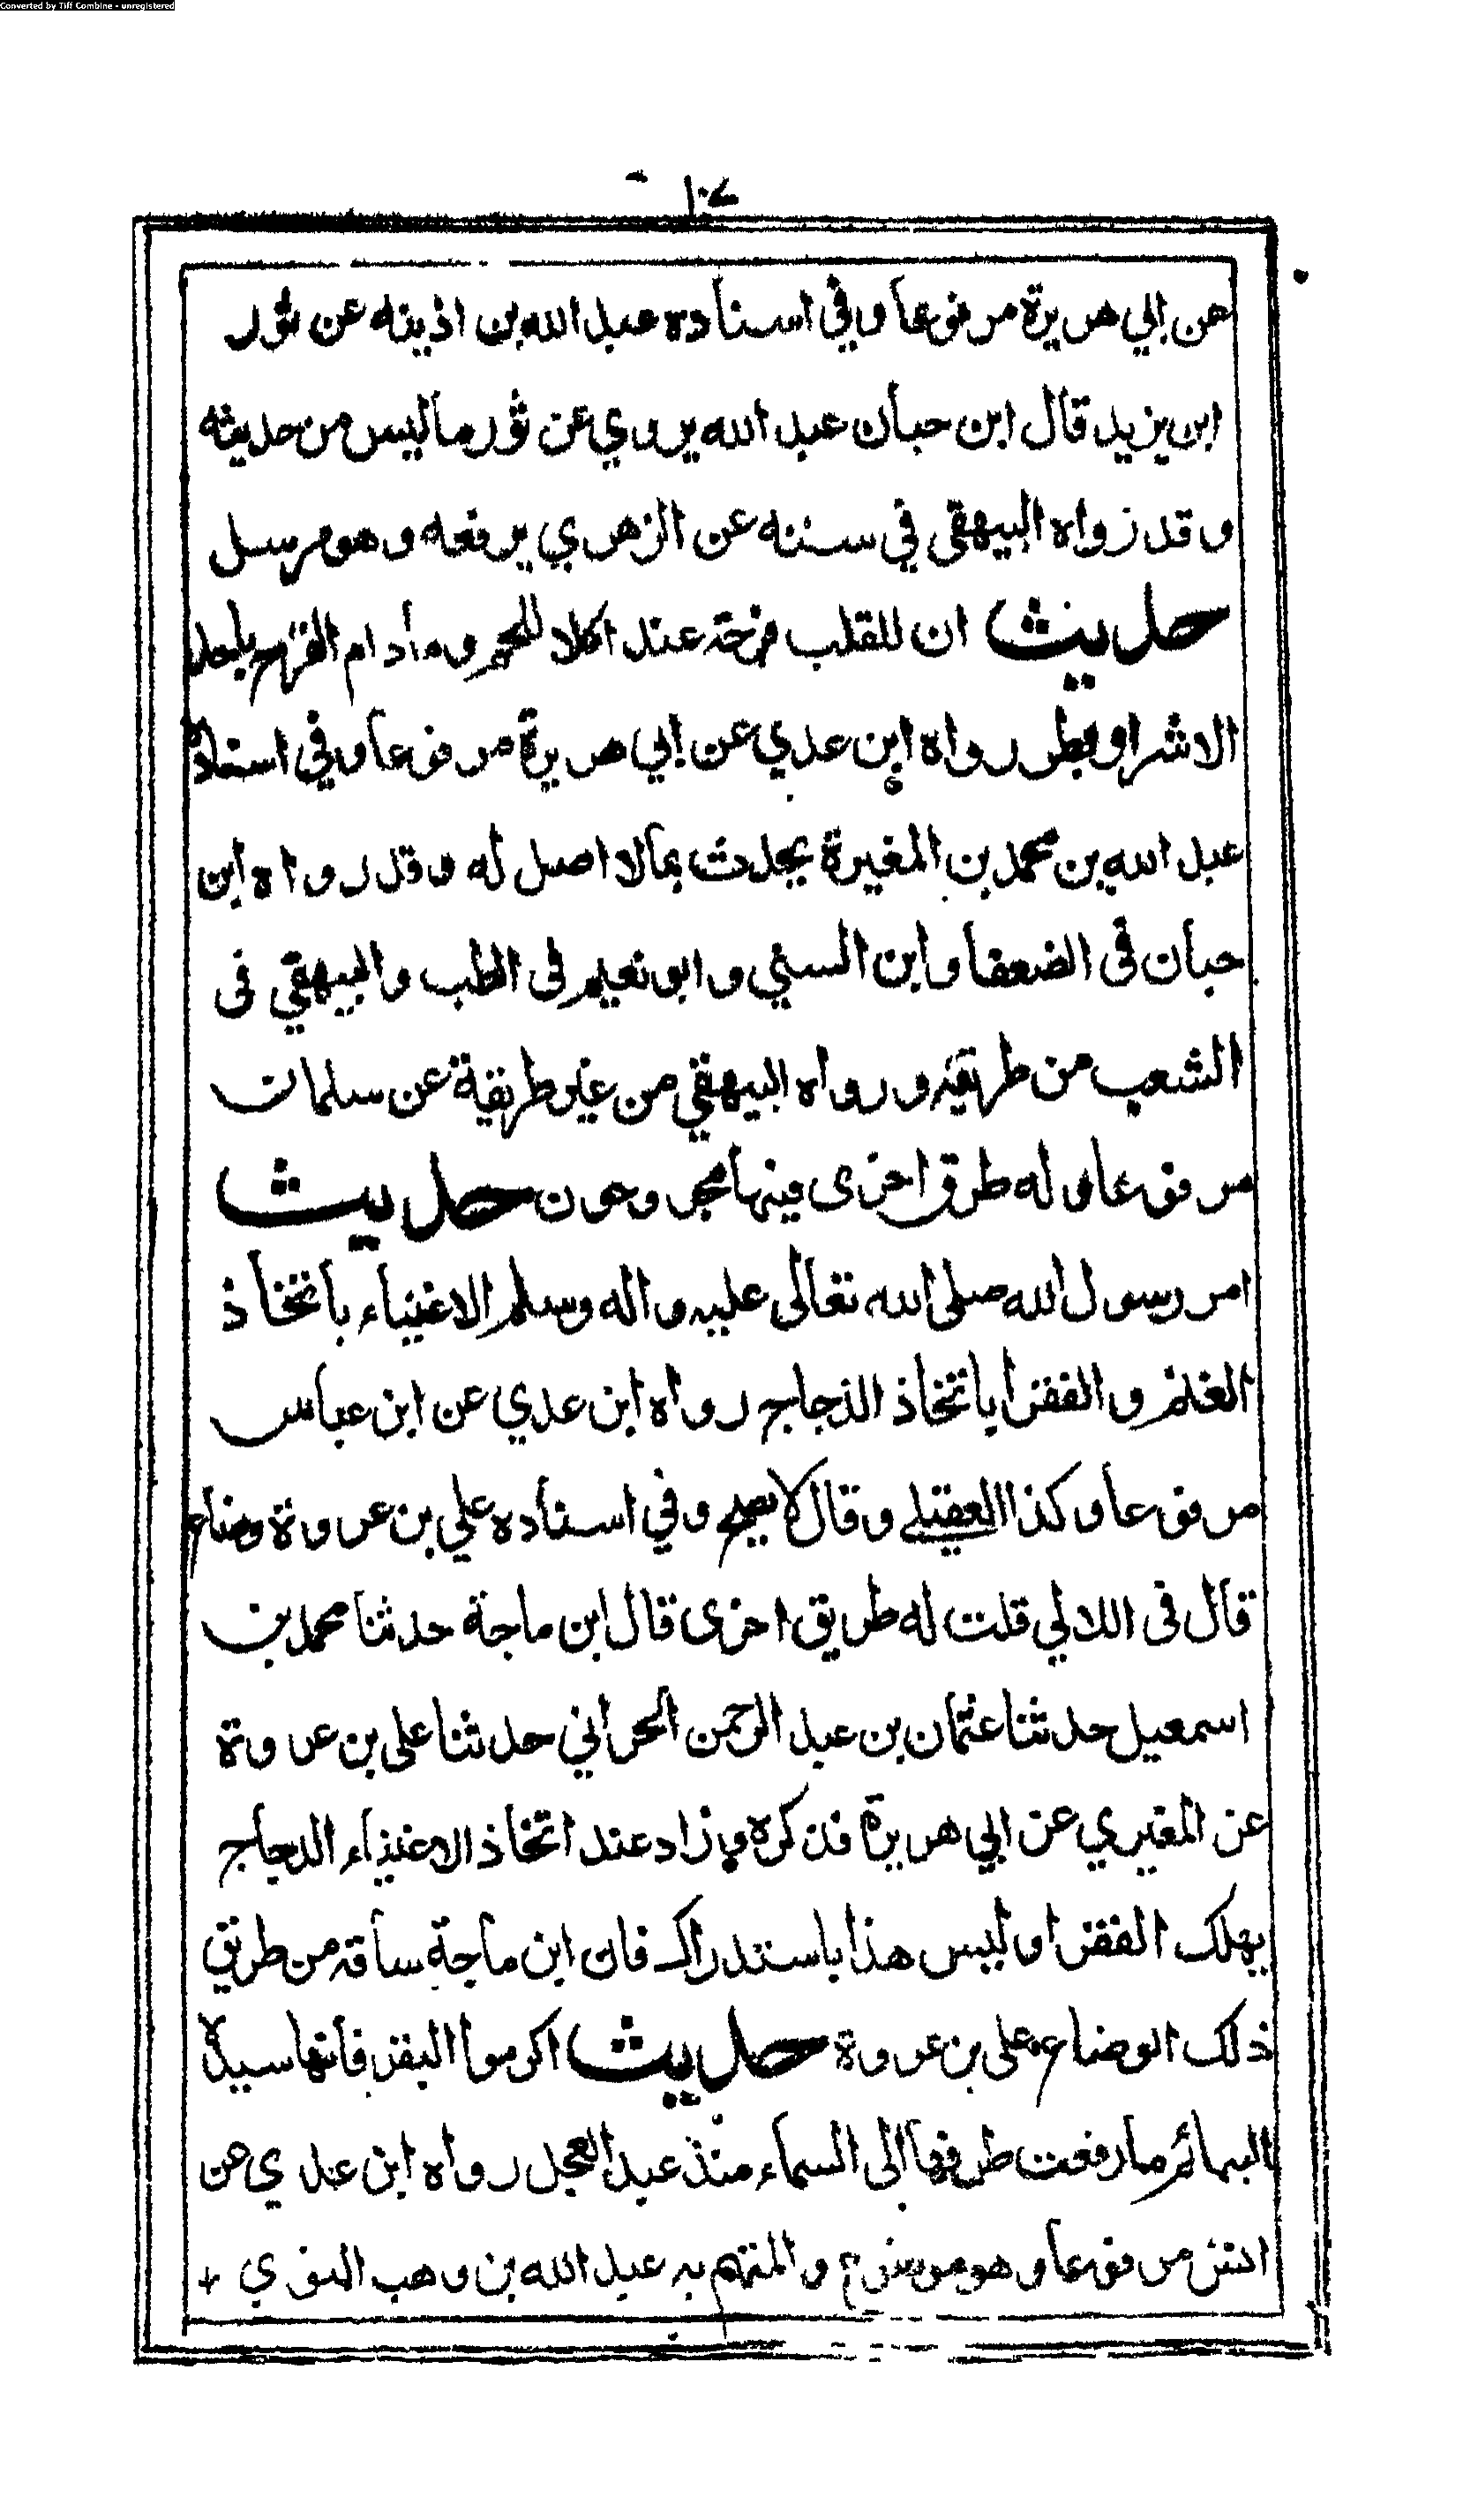 Converted by Tiff Combine - unregistered
عن ابي هريرة مرفوعا وفي اسناده عبد الله بن اذينه عن ثور
ابن يزيد قال ابن حبان عبد الله يروي عن ثور ما ليس من حديثه
وقد رواه البيهقي في سننه عن الزهري يرفعه وهو مرسل
حديث ان للقلب فرحة عند اكلا للحم وما دام الفرح باحد
الا اشر وبطر رواه ابن عدي عن ابي هريرة مرفوعا وفي اسناده
عبد الله بن محمد بن المغيرة يحدث بما لا اصل له وقد رواه ابن
حبان في الضعفا وابن السني وابو نعيم في الطب والبيهقي في
الشعب من طريقه ورواه البيهقي من غير طريقة عن سلمان
مرفوعا وله طرق اخرى فيها مجروحون حديث
امر رسول الله صلى الله تعالى عليه واله وسلم الاغنياء باتخاذ
الغنم والفقرا باتخاذ الدجاج رواه ابن عدي عن ابن عباس
مرفوعا وكذا العقيلے وقال لا يصح وفي اسناده علي بن عروة وضاع
قال في اللالي قلت له طريق اخرى قال ابن ماجة حدثنا محمد بن
اسمعيل حدثنا عثمان بن عبد الرحمن الحراني حدثنا علي بن عروة
عن المقبري عن ابي هريرة فذكره وزاد عند اتخاذ الاغنياء الدجاج
يهلك الفقرا وليس هذا باستدراك فان ابن ماجة ساقه من طريق
ذلك الوضاع علي بن عروة حديث اكرموا البقر فانها سيدة
البهائم ما رفعت طرفها الى السماء منذ عبد العجل رواه ابن عدي عن
انس مرفوعا وهو موضوع والمتهم به عبد الله بن وهب النسوي